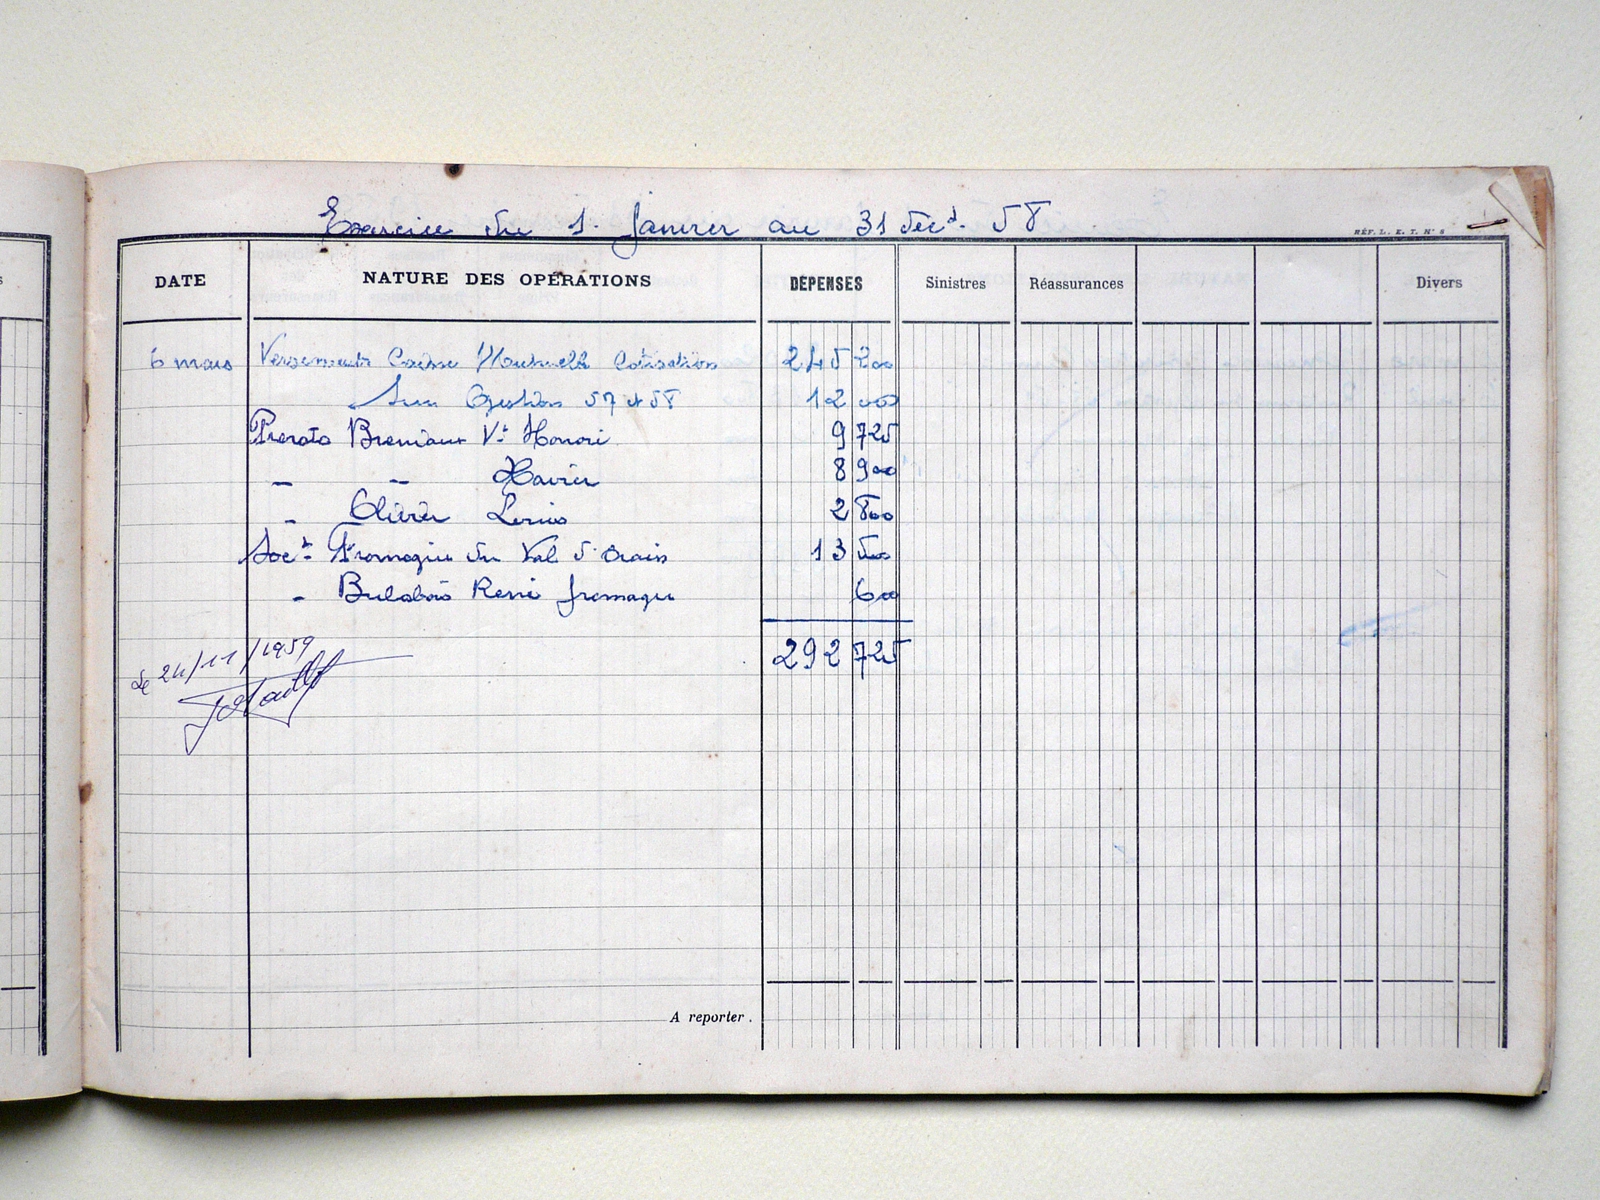 Exercice du 1. Janvier au 31 Déc. 58
RÉF. L. E. T. N° 8
DATE NATURE DES OPÉRATIONS DÉPENSES Sinistres Réassurances Divers
6 mars Versements Caisse Mutuelle Cotisation 245 200
Gestion 57 et 58 12 000
Prorata V.e Honoré 9 725
- - Xavier 8 900
- Olivier 2 800
Soc.té Fromagerie du Val d'Orain 13 500
- Bulabois René fromager 600
292 725
Le 24/11/1959
A reporter.